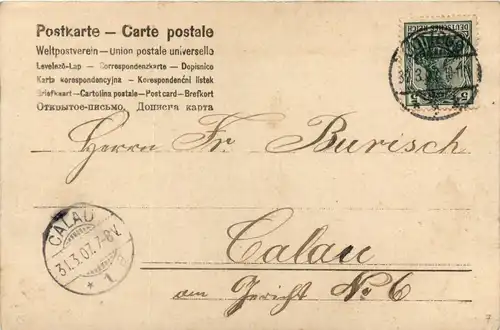 Postkarte – Carte postale
Weltpostverein – Union postale universelle
Levelező-Lap – Correspondenzkarte – Dopisnice
Karta korespondencyjna – Korespondenční lístek
Briefkaart – Cartolina postale – Post card – Brefkort
Открытое-письмо. Дописна карта
DEUTSCHES REICH
5 5
Herrn Fr. Burisch
Calau
am Gericht No 6
CALAU
31.3.07. 7-8V.
* 1 a
7